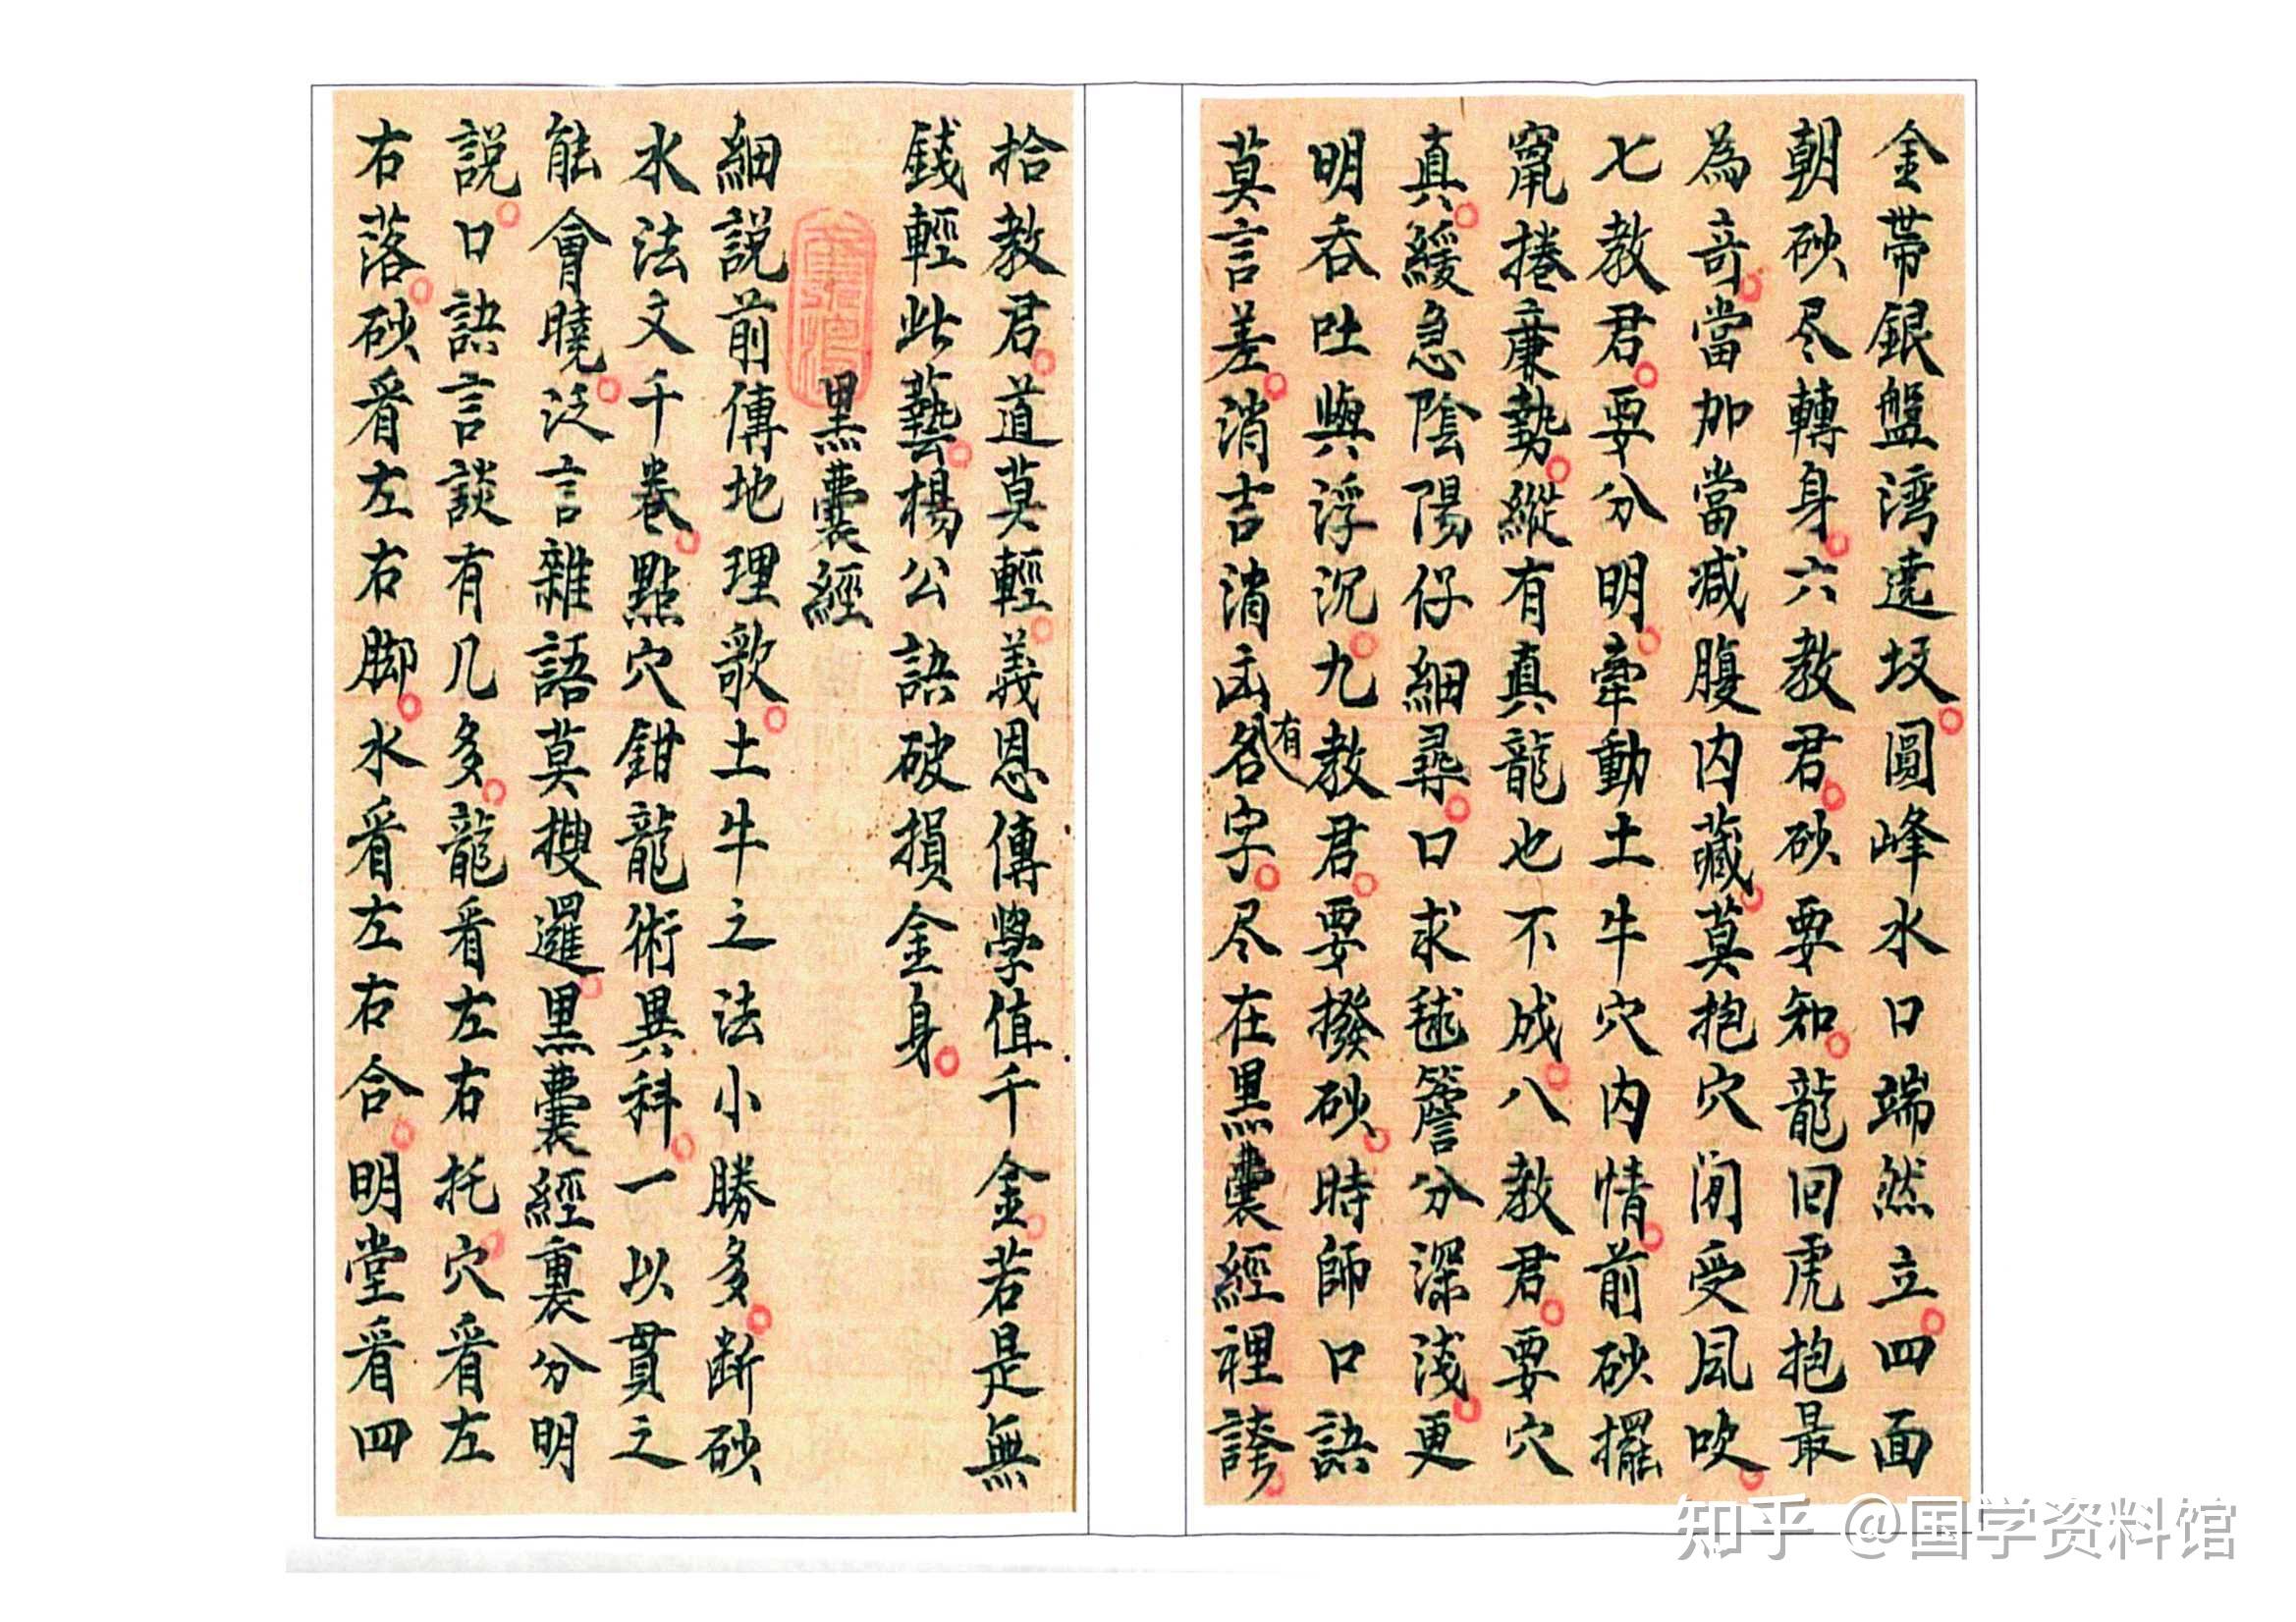 金帶銀盤湾遶坟圓峰水口端然立四面
朝砂尽轉身六教君砂要知龍回虎抱最
為奇當加當减腹内藏莫抱穴闭受風吹
七教君要分明牽動土牛穴内情前砂擺
竄捲亷勢縱有真龍也不成八教君要穴
真緩急陰陽仔細尋口求毬簷分深浅更
明吞吐與浮沉九教君要撥砂時師口訣
莫言差消吉消凶各有字尽在黑囊經裡誇
拾教君道莫輕義恩傳學值千金若是無
錢輕此藝楊公訣破損金身
黑囊經
細説前傳地理歌土牛之法小勝多断砂
水法文千卷點穴鉗龍術異科一以貫之
能會曉泛言雜語莫摟邏黑囊經裏分明
説口訣言談有几多龍看左右托穴看左
右落砂看左右脚水看左右合明堂看四
知乎 @国学资料馆